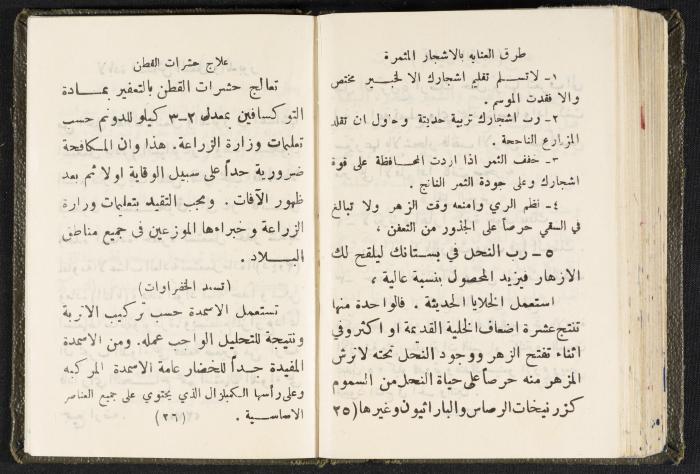 طرق العنايه بالاشجار المثمرة
١- لا تسلم تقليم اشجارك الا لخبير مختص
والا فقدت الموسم .
٢- رب اشجارك تربية حديثة وحاول ان تقلد
المزارع الناجحة .
٣- خفف الثمر اذا اردت المحافظة على قوة
اشجارك وعلى جودة الثمر الناتج .
٤- نظم الري وامنعه وقت الزهر ولا تبالغ
في السقي حرصاً على الجذور من التعفن ،
٥- رب النحل في بستانك ليلقح لك
الازهار فيزيد المحصول بنسبة عالية ،
استعمل الخلايا الحديثة . فالواحدة منها
تنتج عشرة اضعاف الخلية القديمة او اكثر وفي
اثناء تفتح الزهر ووجود النحل تحته لا ترش
المزهر منه حرصاً على حياة النحل من السموم
كزرنيخات الرصاص والباراثيون وغيرها (٢٥
علاج حشرات القطن
تعالج حشرات القطن بالتعفير بمادة
التوكسافين بمعدل ٢-٣ كيلو للدونم حسب
تعليمات وزارة الزراعة. هذا وان المكافحة
ضرورية جداً على سبيل الوقاية اولا ثم بعد
ظهور الآفات . ويجب التقيد بتعليمات وزارة
الزراعة وخبراءها الموزعين في جميع مناطق
البلاد .
(تسمد الخضراوات)
تستعمل الاسمدة حسب تركيب الاتربة
ونتيجة للتحليل الواجب عمله. ومن الاسمدة
المفيدة جداً للخضار عامة الاسمدة المركبه
وعلى رأسها الكمبلزال الذي يحتوي على جميع العناصر
الاساسية . (٢٦)